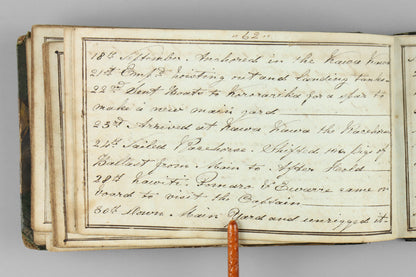 "62"
18th September. Anchored in the Kawa Kawa
21st Emp'd hoisting out and landing tanks
22nd Sent Boats to Kororarika for a spar to
make a new main yard
23rd Arrived at Kawa Kawa the
24th Sailed Shifted
Ballast from Main to After Hold
28th Pomare & came on
board to visit the Captain
30th Down Main Yard and unrigged it